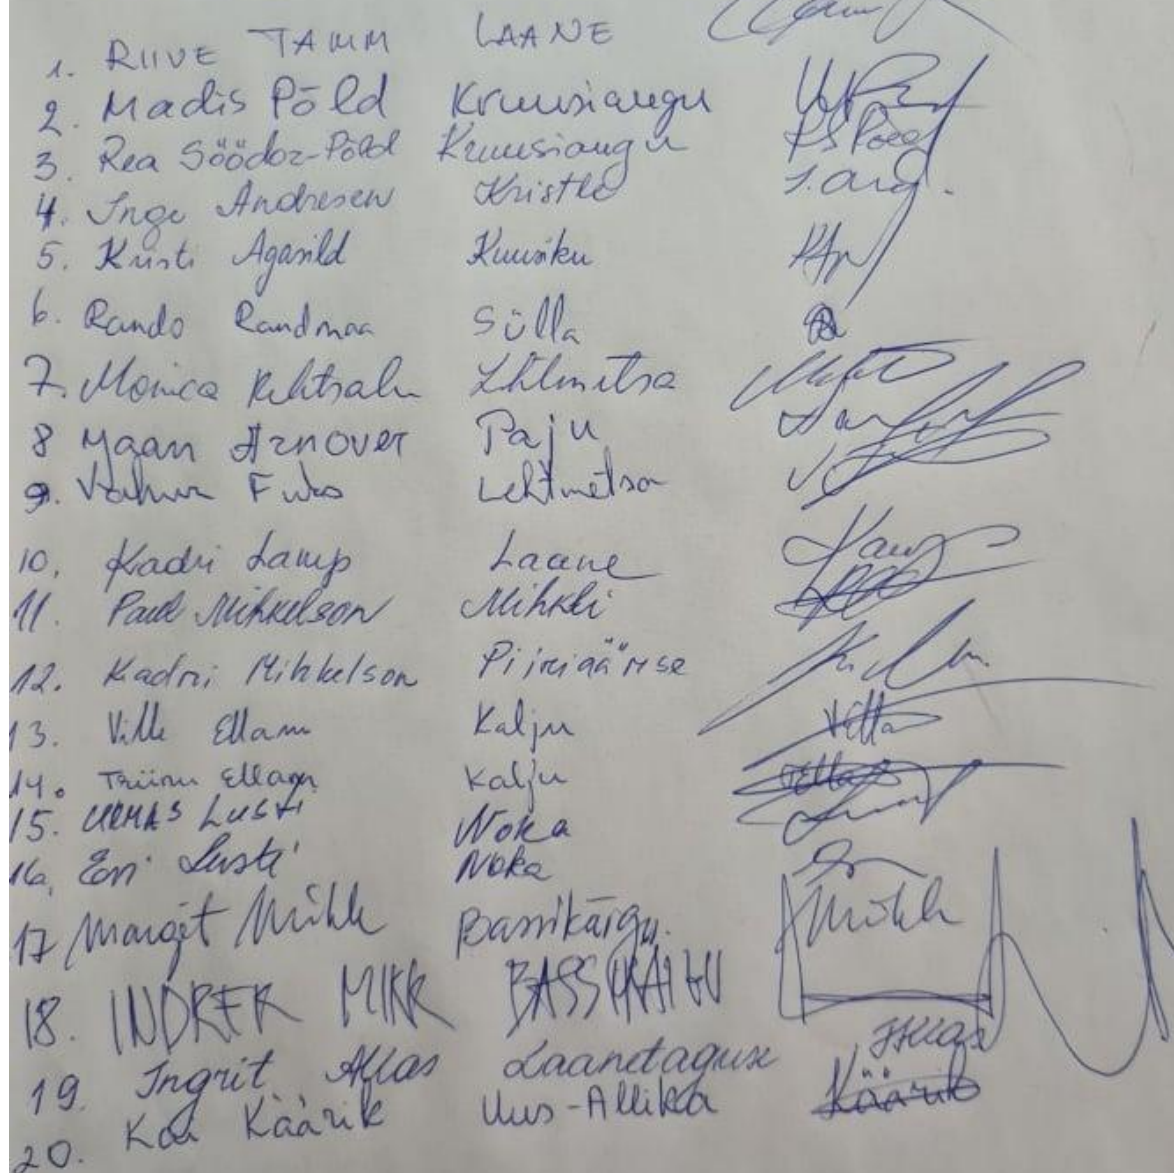 1. RIIVE TAMM LAANE
2. Madis Põld Kruusiaugu
3. Rea Söödor-Põld Kruusiaugu
4. Inge Andresen Kristle
5. Kristi Agasild Kuusiku
6. Rando Randmaa Sülla
7. Monica Lehtmetsa
8 Jaan Arnover Paju
9. Fuks Lehtmetsa
10. Kadri Lamp Laane
11. Paul Mihkelson Mihkli
12. Kadri Mihkelson Piiriäärse
13. Ville Ellam Kalju
14. Triinu Ellam Kalju
15. URMAS LUSTI Noka
16. Eri Lusti Noka
17 Margit Mikk Bassikaigu Mikk
18. INDREK MIKK BASSIKAIGU
19. Ingrit Allas Laanetaguse Allas
20. Käärik Uus-Allika Käärik